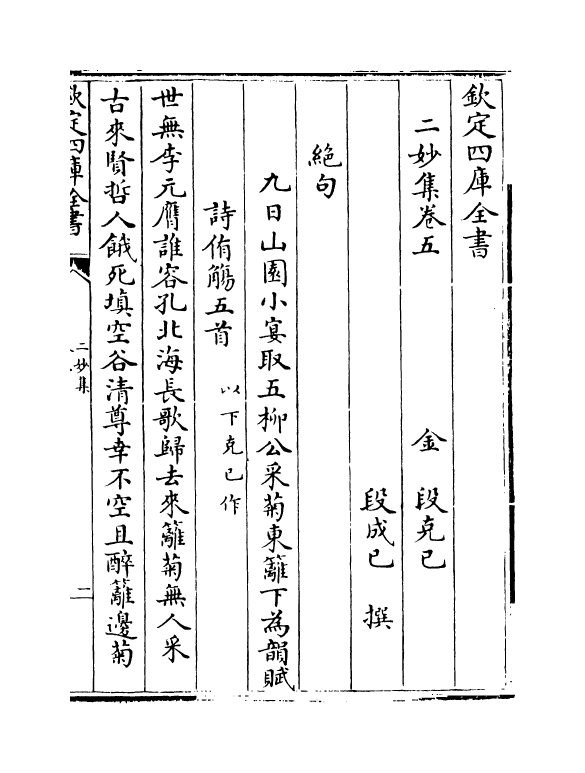 欽定四庫全書
二妙集卷五
金　段克已
段成已　撰
絶句
九日山園小宴取五柳公采菊東籬下為韻賦
詩侑觴五首　以下克已作
世無李元膺誰容孔北海長歌歸去來籬菊無人采
古來賢哲人餓死填空谷清尊幸不空且醉籬邊菊
欽定四庫全書
二妙集
二